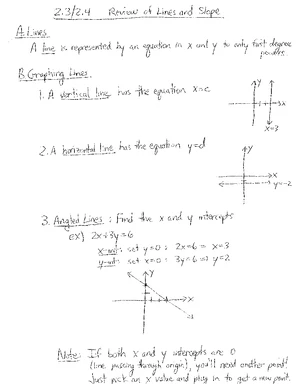 2.3/2.4 Review of Lines and Slope
A. Lines
A line is represented by an equation in x and y to only first degree
powers.
B. Graphing Lines.
1. A vertical line has the equation x=c
y
x
x=3
2. A horizontal line has the equation y=d
y
x
y=-2
3. Angled Lines: Find the x and y intercepts
ex) 2x+3y=6
x-int: set y=0: 2x=6 ⇒ x=3
y-int: set x=0: 3y=6 ⇒ y=2
y
x
Note: If both x and y intercepts are 0
(line passing through origin), you'll need another point!
Just pick an x value and plug in to get a new point.